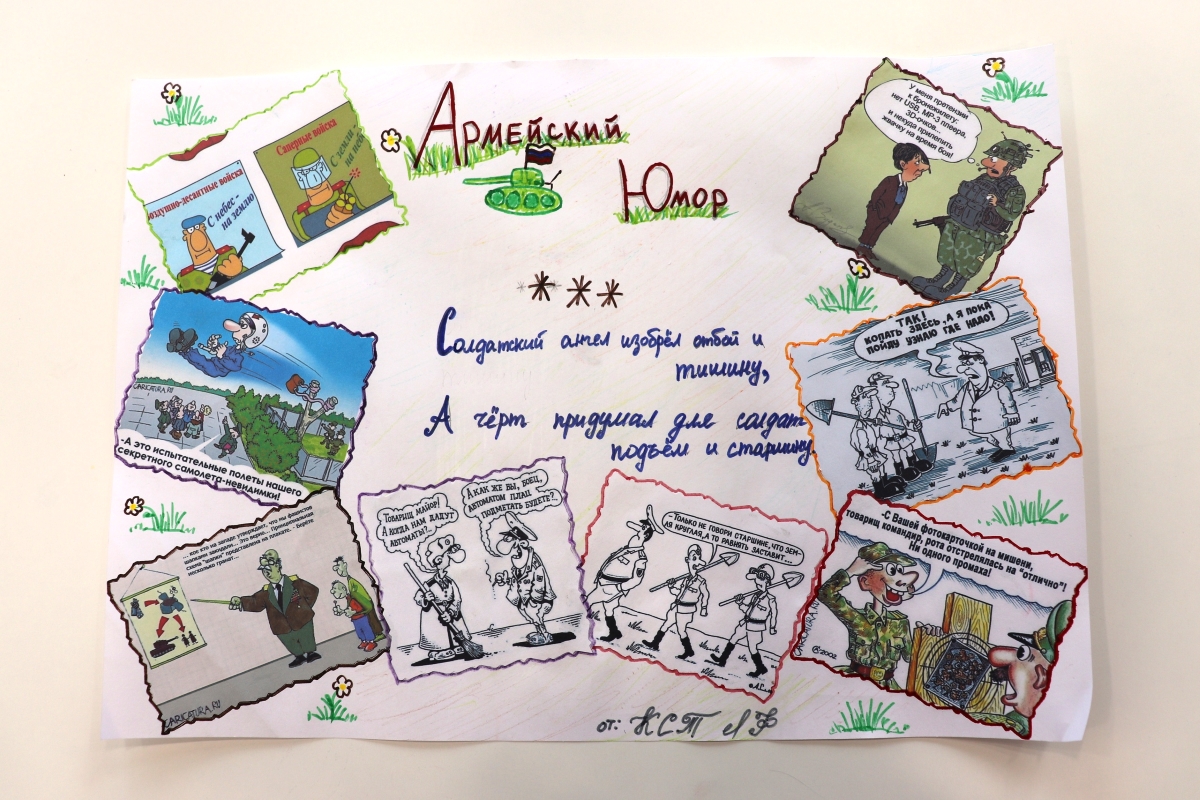 Армейский
Юмор
Воздушно-десантные войска
С небес -
на землю
Саперные войска
С земли -
на небо
У меня претензии
к бронежилету:
нет USB, MP-3 плеера,
3D-очков...
и некуда прилепить
жвачку на время боя!
***
Солдатский ангел изобрёл отбой и
тишину,
А чёрт придумал для солдат
подъём и старшину.
CARICATURA.RU
-А это испытательные полеты нашего
секретного самолета-невидимки!
ТАК!
КОПАТЬ ЗДЕСЬ, А Я ПОКА
ПОЙДУ УЗНАЮ ГДЕ НАДО!
... кое кто на западе утверждает, что мы фашистов
шапками закидали... Это верно... Принципиальная
схема "шапки" представлена на плакате. - Берёте
несколько гранат...
CARICATURA.RU
ТОВАРИЩ МАЙОР!
А КОГДА НАМ ДАДУТ
АВТОМАТЫ?..
А КАК ЖЕ ВЫ, БОЕЦ,
АВТОМАТОМ ПЛАЦ
ПОДМЕТАТЬ БУДЕТЕ?
-ТОЛЬКО НЕ ГОВОРИ СТАРШИНЕ, ЧТО ЗЕМ-
ЛЯ КРУГЛАЯ, А ТО РАВНЯТЬ ЗАСТАВИТ...
-С Вашей фотокарточкой на мишени,
товарищ командир, рота отстрелялась на "отлично"!
Ни одного промаха!
©2002
от: КСТ ЛФ